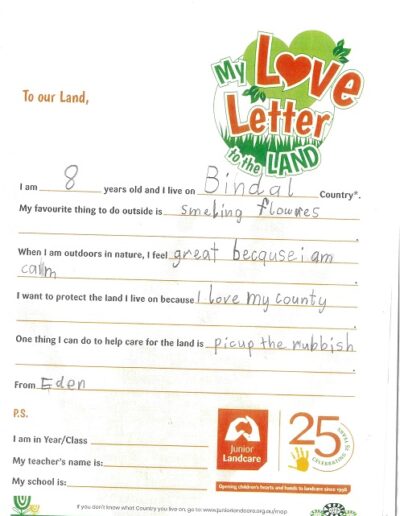 My Love
Letter
to the LAND
To our Land,
I am 8 years old and I live on Bindal Country*.
My favourite thing to do outside is smeling flowres
.
When I am outdoors in nature, I feel great because i am
calm .
I want to protect the land I live on because I love my county
.
One thing I can do to help care for the land is picup the rubbish
.
From Eden
P.S.
I am in Year/Class
My teacher's name is:
My school is:
Junior
Landcare
25
CELEBRATING 25 YEARS
Opening children's hearts and hands to landcare since 1998
If you don't know what Country you live on, go to: www.juniorlandcare.org.au/map